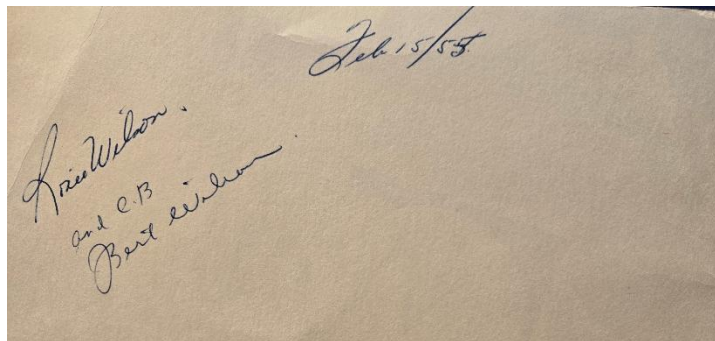 Feb 15/55
Rosie Wilson.
and C.B
Bert Wilson.